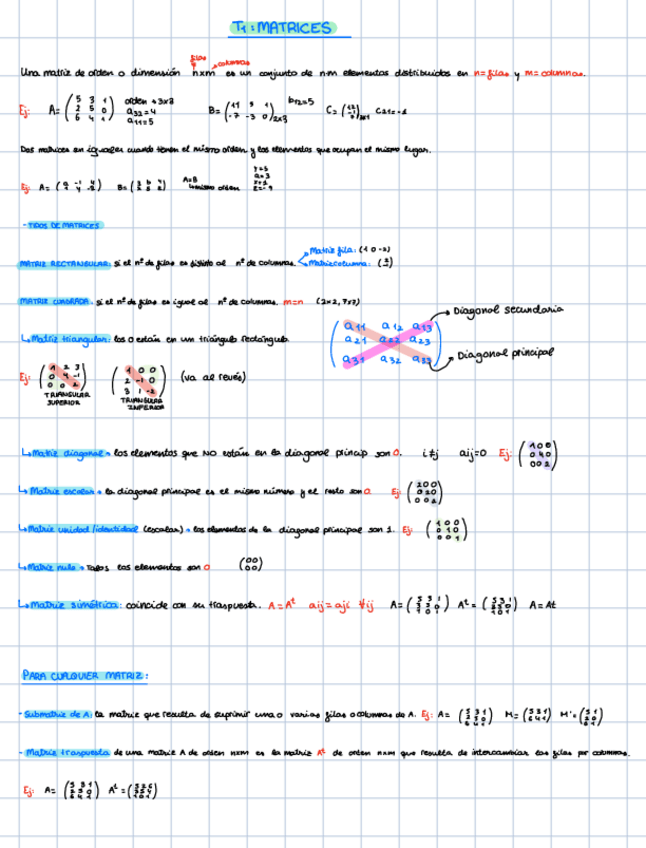 T1: MATRICES
filas columnas
Una matriz de orden o dimensión nxm es un conjunto de n·m elementos distribuidos en n=filas y m=columnas.
Ej: A= (5 3 1 / 2 5 0 / 6 4 1) orden → 3x3 a32=4 a11=5 B= b12=5 C=
Dos matrices son iguales cuando tienen el mismo orden y los elementos que ocupan el mismo lugar.
Ej: A= B= A=B mismo orden
- TIPOS DE MATRICES
Matriz fila: (1 0 -2)
MATRIZ RECTANGULAR: si el nº de filas es distinto al nº de columnas. Matriz columna:
MATRIZ CUADRADA: si el nº de filas es igual al nº de columnas. m=n (2x2, 7x7)
Diagonal secundaria
Matriz triangular: los 0 están en un triángulo rectángulo.
a11 a12 a13
a21 a22 a23
a31 a32 a33
Diagonal principal
Ej: (1 2 3 / 0 4 -1 / 0 0 2) (1 0 0 / 2 -1 0 / 3 1 -2) (va al revés)
TRIANGULAR SUPERIOR TRIANGULAR INFERIOR
Matriz diagonal → los elementos que NO están en la diagonal princip son 0. i≠j aij=0 Ej: (1 0 0 / 0 4 0 / 0 0 2)
Matriz escalar → la diagonal principal es el mismo número y el resto son 0 Ej: (2 0 0 / 0 2 0 / 0 0 2)
Matriz unidad/identidad (escalar) → los elementos de la diagonal principal son 1. Ej: (1 0 0 / 0 1 0 / 0 0 1)
Matriz nula → Todos los elementos son 0 (0 0 / 0 0)
Matriz simétrica: coincide con su traspuesta. A=Aᵗ aij=aji ∀ij A= Aᵗ= A=At
PARA CUALQUIER MATRIZ:
- Submatriz de A: la matriz que resulta de suprimir una o varias filas o columnas de A. Ej: A= M= M'=
- Matriz traspuesta de una matriz A de orden nxm es la matriz Aᵗ de orden nxm que resulta de intercambiar las filas por columnas.
Ej: A= Aᵗ=